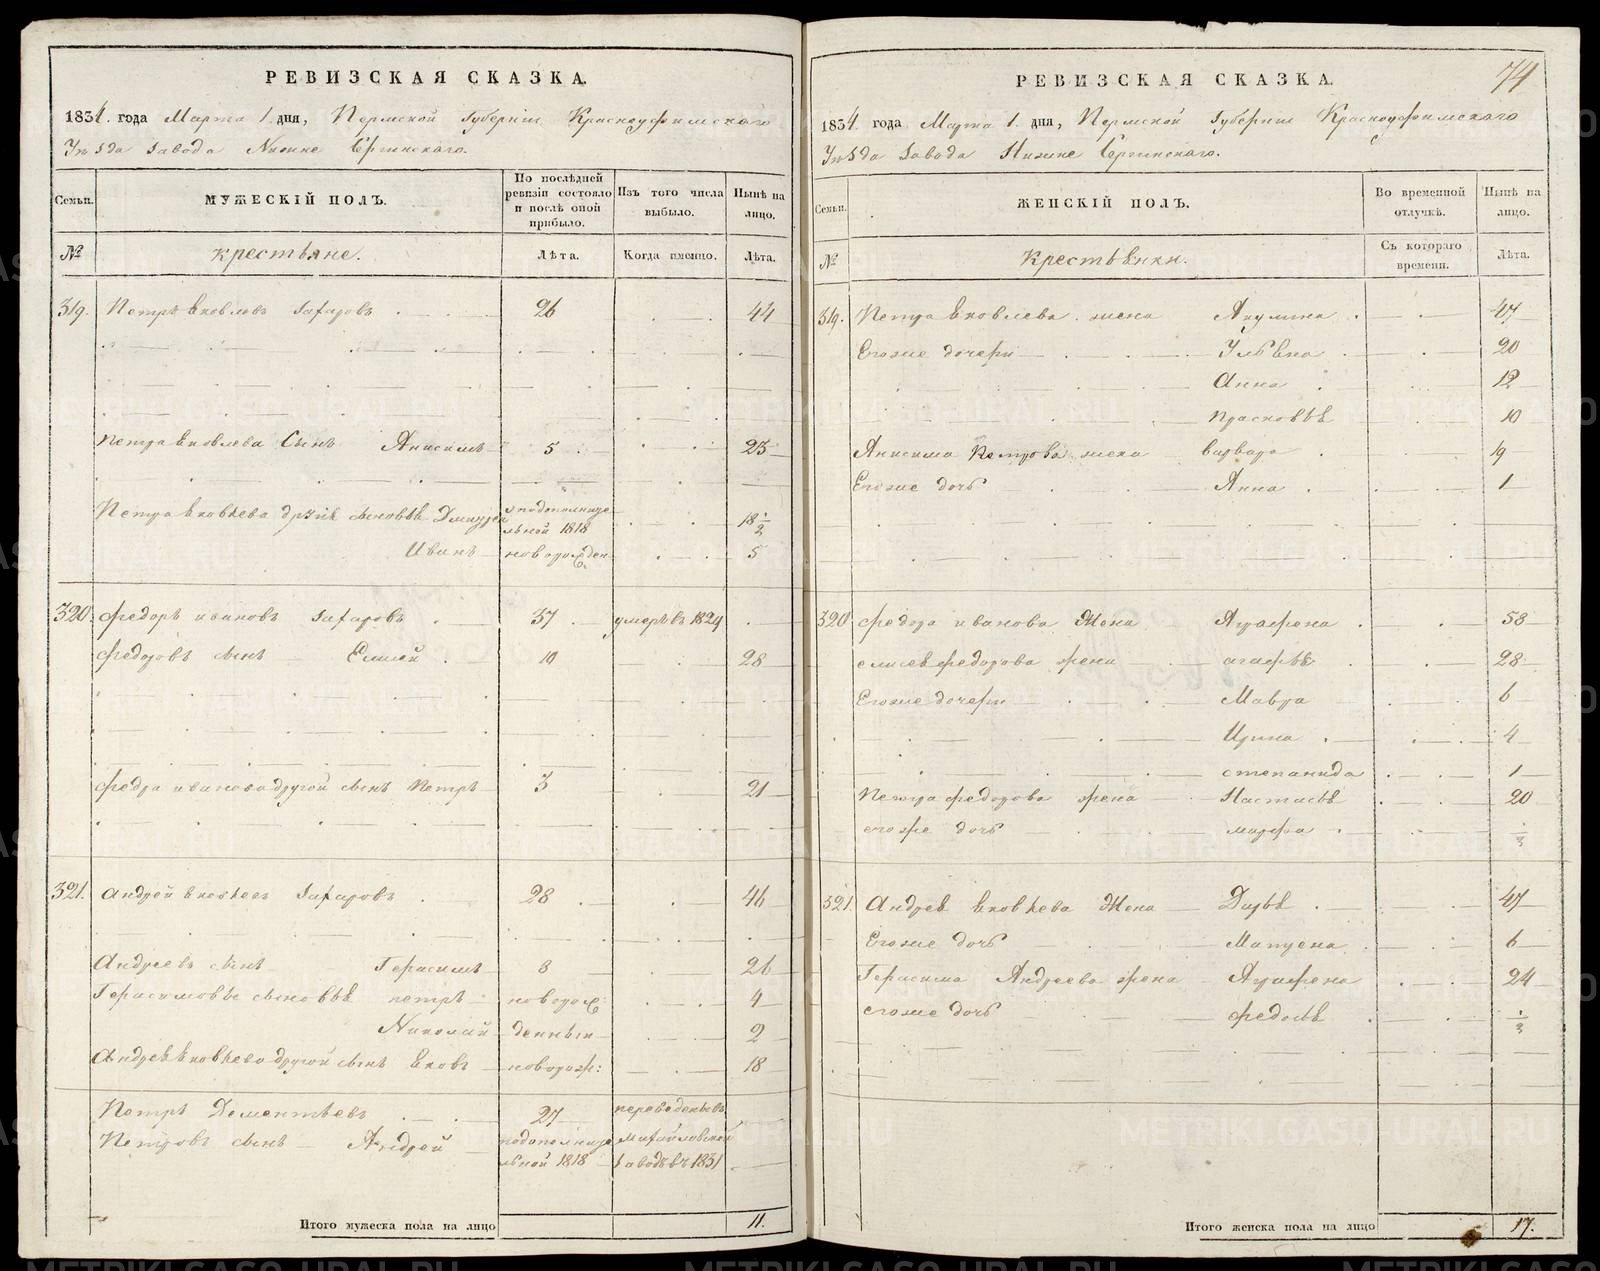 РЕВИЗСКАЯ СКАЗКА.
1834. года Марта 1. дня, Пермской Губерніи Красноуфимскаго
Уѣзда Завода Нижне Сергинскаго.
Семьи. МУЖЕСКІЙ ПОЛЪ. По послѣдней ревизіи состояло и послѣ оной прибыло. Изъ того числа выбыло. Нынѣ на лицо.
№ крестьяне. Лѣта. Когда именно. Лѣта.
319. Петръ Яковлевъ Захаровъ 26 44
Петра Яковлева Сынъ Анисимъ 5 23
Петра Яковлева другіе сыновья Дмитрей подополните льной 1818 18 1/2
Иванъ новорожден 5
320. Федоръ Ивановъ Захаровъ 37 умеръ въ 1829
Федоровъ сынъ Елисей 10 28
Федора Иванова другой сынъ Петръ 3 21
321. Андрей Яковлевъ Захаровъ 28 46
Андреевъ сынъ Герасимъ 8 26
Герасимовы сыновья Петръ новорож 4
Николай денныи 2
Андрея Яковлева другой сынъ Яковъ новорож: 18
Петръ Дементьевъ 27 переведены въ
Петровъ сынъ Андрей подополните льной 1818 Михайловской Заводъ въ 1831
Итого мужеска пола на лицо 11.
74
РЕВИЗСКАЯ СКАЗКА.
1834. года Марта 1. дня, Пермской Губерніи Красноуфимскаго
Уѣзда Завода Нижне Сергинскаго.
Семьи. ЖЕНСКІЙ ПОЛЪ. Во временной отлучкѣ. Нынѣ на лицо.
№ Крестьянки. Съ котораго времени. Лѣта.
319. Петра Яковлева жена Акулина 47
Егоже дочери Ульяна 20
Анна 12
Прасковья 10
Анисима Петрова жена Варвара 19
Егоже дочь Анна 1
320 Федора Иванова Жена Аграфена 58
Елисея Федорова жена Агафья 28
Егоже дочери Мавра 6
Ирина 4
Степанида 1
Петра Федорова жена Настасья 20
егоже дочь Марфа 1/3
321. Андрея Яковлева Жена Дарья 47
Егоже дочь Матрена 6
Герасима Андреева жена Аграфена 24
егоже дочь Федосья 1/3
Итого женска пола на лицо 17.
METRIKI.GASO-URAL.RU